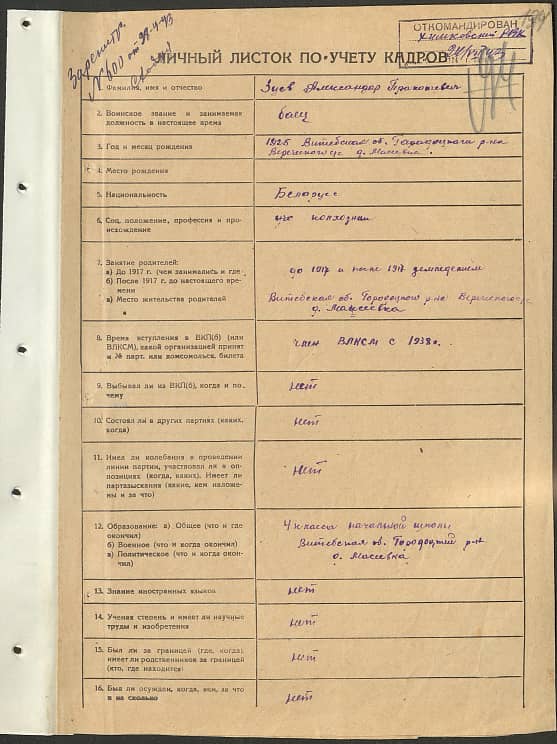 ОТКОМАНДИРОВАН
Химковский РВК
194
Зарегистр.
№ 600 от 29-4-43
ЛИЧНЫЙ ЛИСТОК ПО УЧЕТУ КАДРОВ
1. Фамилия, имя и отчество
Зуев Александр Прокопьевич
2. Воинское звание и занимаемая
должность в настоящее время
боец
3. Год и месяц рождения
1925 Витебская об. Городоцкого р-на
д. Масеевка
4. Место рождения
5. Национальность
Белорус
6. Соц. положение, профессия и про-
исхождение
из колхозник
7. Занятие родителей:
а) До 1917 г. (чем занимались и где
б) После 1917 г. до настоящего вре-
мени
в) Место жительства родителей
до 1917 и после 1917 земледелием
Витебская об. Городоцкого р-на
д. Масеевка
8. Время вступления в ВКП(б) (или
ВЛКСМ), какой организацией принят
и № парт. или комсомольск. билета
член ВЛКСМ с 1938 г.
9. Выбывал ли из ВКП(б), когда и по-
чему
нет
10. Состоял ли в других партиях (каких,
когда)
нет
11. Имел ли колебания в проведении
линии партии, участвовал ли в оп-
позициях (когда, каких). Имеет ли
партвзыскания (какие, кем наложе-
ны и за что)
нет
12. Образование: а) Общее (что и где
окончил)
б) Военное (что и когда окончил)
в) Политическое (что и когда окон-
чил)
4 класса начальной школы
Витебская об. Городоцкий р-н
д. Масеевка
13. Знание иностранных языков
нет
14. Ученая степень и имеет ли научные
труды и изобретения
нет
15. Был ли за границей (где, когда),
имеет ли родственников за границей
(кто, где находится)
нет
16. Был ли осужден, когда, кем, за что
и на сколько
нет